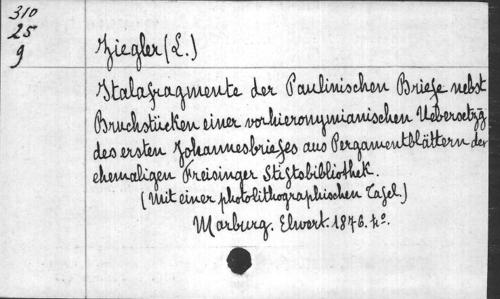 310
25
9
Ziegler (L.)
Italafragmente der Paulinischen Briefe nebst
Bruchstücken einer vorhieronymianischen Uebersetzg
des ersten Johannesbriefes aus Pergamentblättern der
ehemaligen Freisinger Stiftsbibliothek.
(Mit einer photolithographischen Tafel.)
Marburg. Elwert. 1876. 4º.